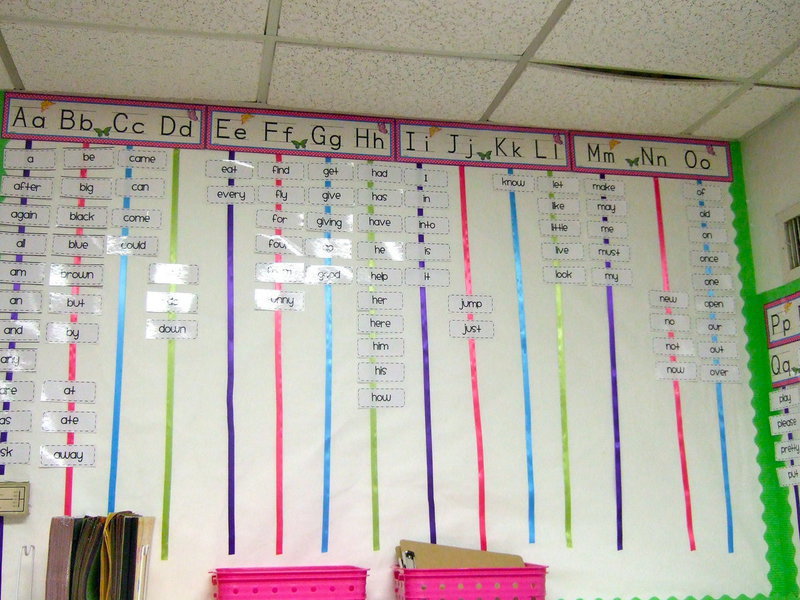 Aa Bb Cc Dd
Ee Ff Gg Hh
Ii Jj Kk Ll
Mm Nn Oo
a
after
again
all
am
an
and
any
are
as
sk
be
big
black
blue
brown
but
by
at
ate
away
came
can
come
could
down
eat
every
find
fly
for
four
funny
get
give
giving
go
good
had
has
have
he
help
her
here
him
his
how
I
in
into
is
it
jump
just
know
let
like
little
live
look
make
may
me
must
my
new
no
not
now
of
old
on
once
one
open
our
out
over
Pp
Qq
play
please
pretty
put